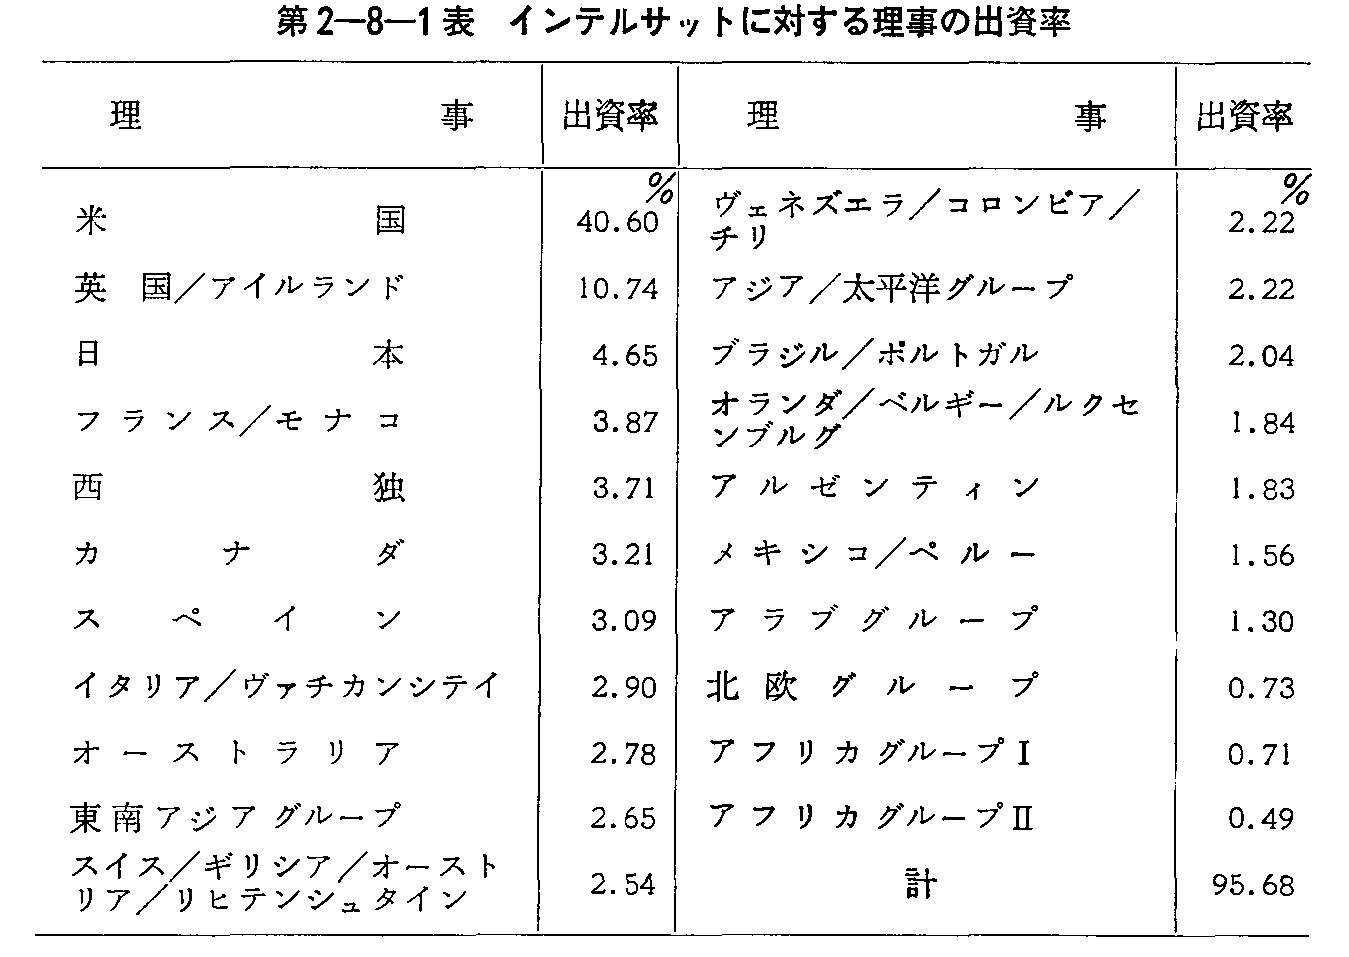 第2―8―1表 インテルサットに対する理事の出資率
理事 出資率 理事 出資率
% %
米国 40.60 ヴェネズエラ/コロンビア/チリ 2.22
英国/アイルランド 10.74 アジア/太平洋グループ 2.22
日本 4.65 ブラジル/ポルトガル 2.04
フランス/モナコ 3.87 オランダ/ベルギー/ルクセンブルグ 1.84
西独 3.71 アルゼンティン 1.83
カナダ 3.21 メキシコ/ペルー 1.56
スペイン 3.09 アラブグループ 1.30
イタリア/ヴァチカンシテイ 2.90 北欧グループ 0.73
オーストラリア 2.78 アフリカグループI 0.71
東南アジアグループ 2.65 アフリカグループII 0.49
スイス/ギリシア/オーストリア/リヒテンシュタイン 2.54 計 95.68